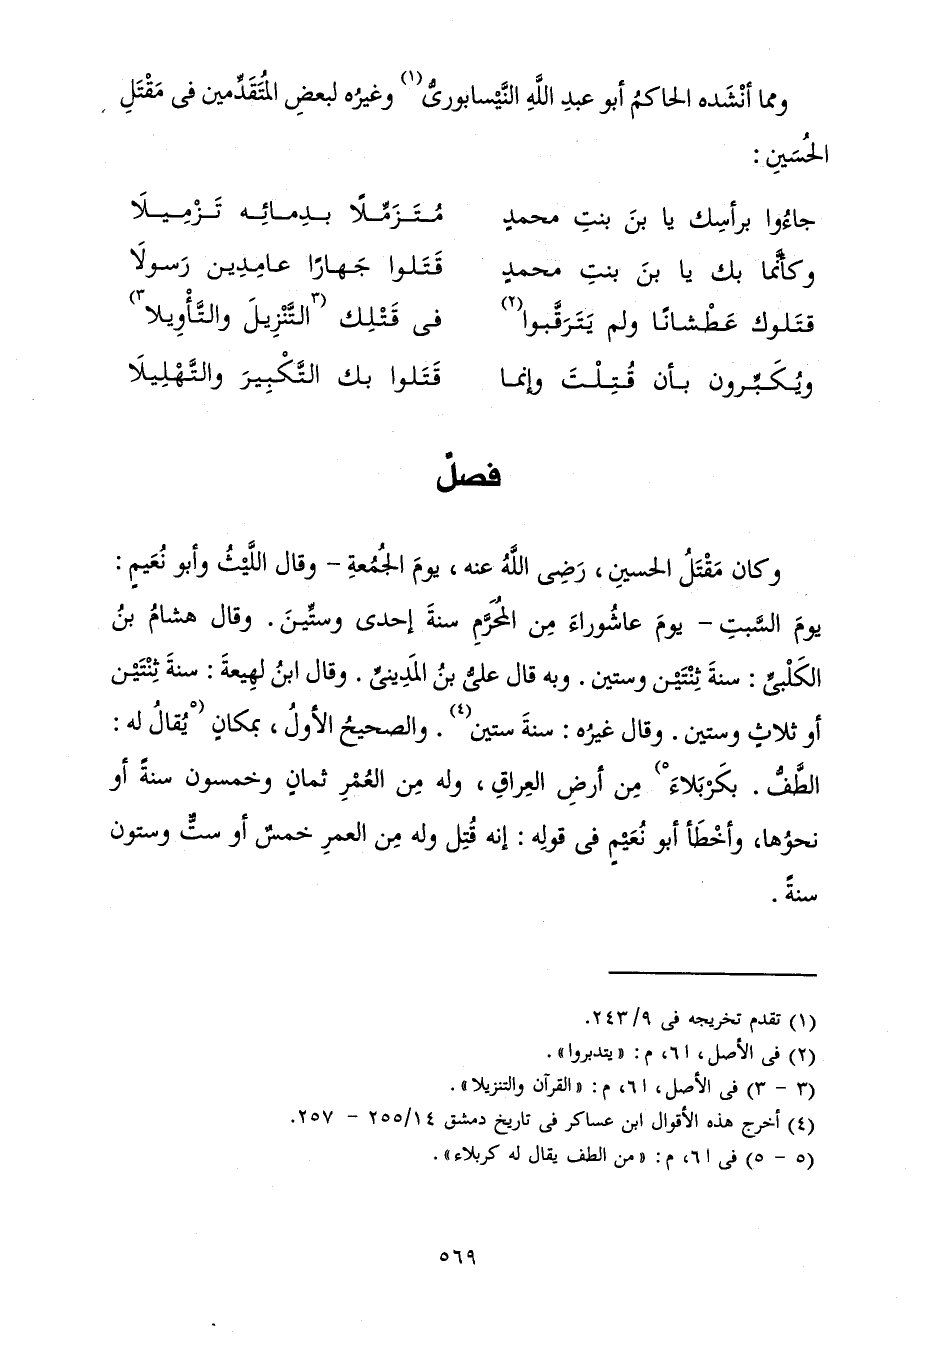 ومما أنْشَده الحاكمُ أبو عبدِ اللَّهِ النَّيْسابورىُّ(١) وغيرُه لبعضِ المُتَقَدِّمين فى مَقْتَلِ
الحُسَينِ :
جاءُوا برأسِك يا بنَ بنتِ محمدٍ مُتَزَمِّلًا بدمائِه تَزْمِيلَا
وكأنَّما بك يا بنَ بنتِ محمدٍ قَتَلوا جَهارًا عامِدِين رَسولَا
قتَلوك عَطْشانًا ولم يَتَرَقَّبوا(٢) فى قَتْلِك (٣التَّنْزِيلَ والتَّأْوِيلا٣)
ويُكَبِّرون بأن قُتِلْتَ وإنما قَتَلوا بك التَّكْبِيرَ والتَّهْلِيلَا
فصلٌ
وكان مَقْتَلُ الحسينِ ، رَضِى اللَّهُ عنه ، يومَ الجُمُعةِ – وقال اللَّيْثُ وأبو نُعَيمٍ :
يومَ السَّبتِ – يومَ عاشُوراءَ مِن المُحَرَّمِ سنةَ إحدى وستِّينَ . وقال هشامُ بنُ
الكَلْبىِّ : سنةَ ثِنْتَيْن وستين . وبه قال علىُّ بنُ المَدِينىِّ . وقال ابنُ لهِيعةَ : سنةَ ثِنْتَيْن
أو ثلاثٍ وستين . وقال غيرُه : سنةَ ستين(٤) . والصحيحُ الأولُ ، بمكانٍ (٥يُقالُ له :
الطَّفُّ . بكَرْبَلاءَ٥) مِن أرضِ العِراقِ ، وله مِن العُمْرِ ثمانٍ وخمسون سنةً أو
نحوُها، وأخْطَأ أبو نُعَيْمٍ فى قولِه : إنه قُتِل وله مِن العمرِ خمسٌ أو ستٌّ وستون
سنةً .
(١) تقدم تخريجه فى ٩/ ٢٤٣.
(٢) فى الأصل، ا ٦، م: «يتدبروا» .
(٣ - ٣) فى الأصل، ا ٦، م: «القرآن والتنزيلا» .
(٤) أخرج هذه الأقوال ابن عساكر فى تاريخ دمشق ١٤/ ٢٥٥ - ٢٥٧.
(٥ - ٥) فى ا ٦، م: «من الطف يقال له كربلاء» .
٥٦٩